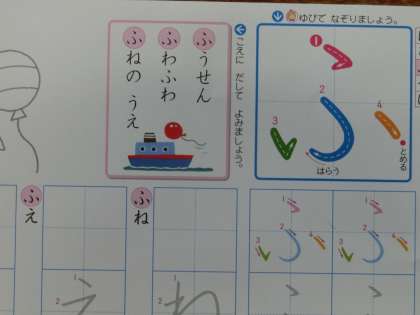 ゆびで なぞりましょう。
1
2
3
4
はらう
とめる
こえに だして よみましょう。
ふうせん
ふわふわ
ふねの うえ
ふね
ふえ
1
2
3
4
1
2
3
4
1
2
ね
1
2
え